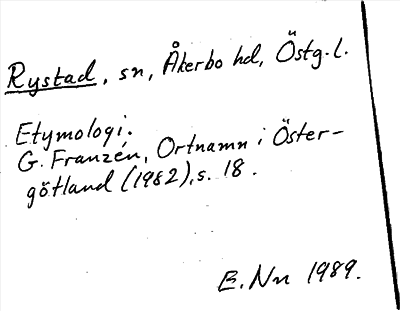 Rystad, sn, Åkerbo hd, Östg.l.
Etymologi.
G. Franzén, Ortnamn i Öster-
götland (1982), s. 18.
B. Nn 1989.